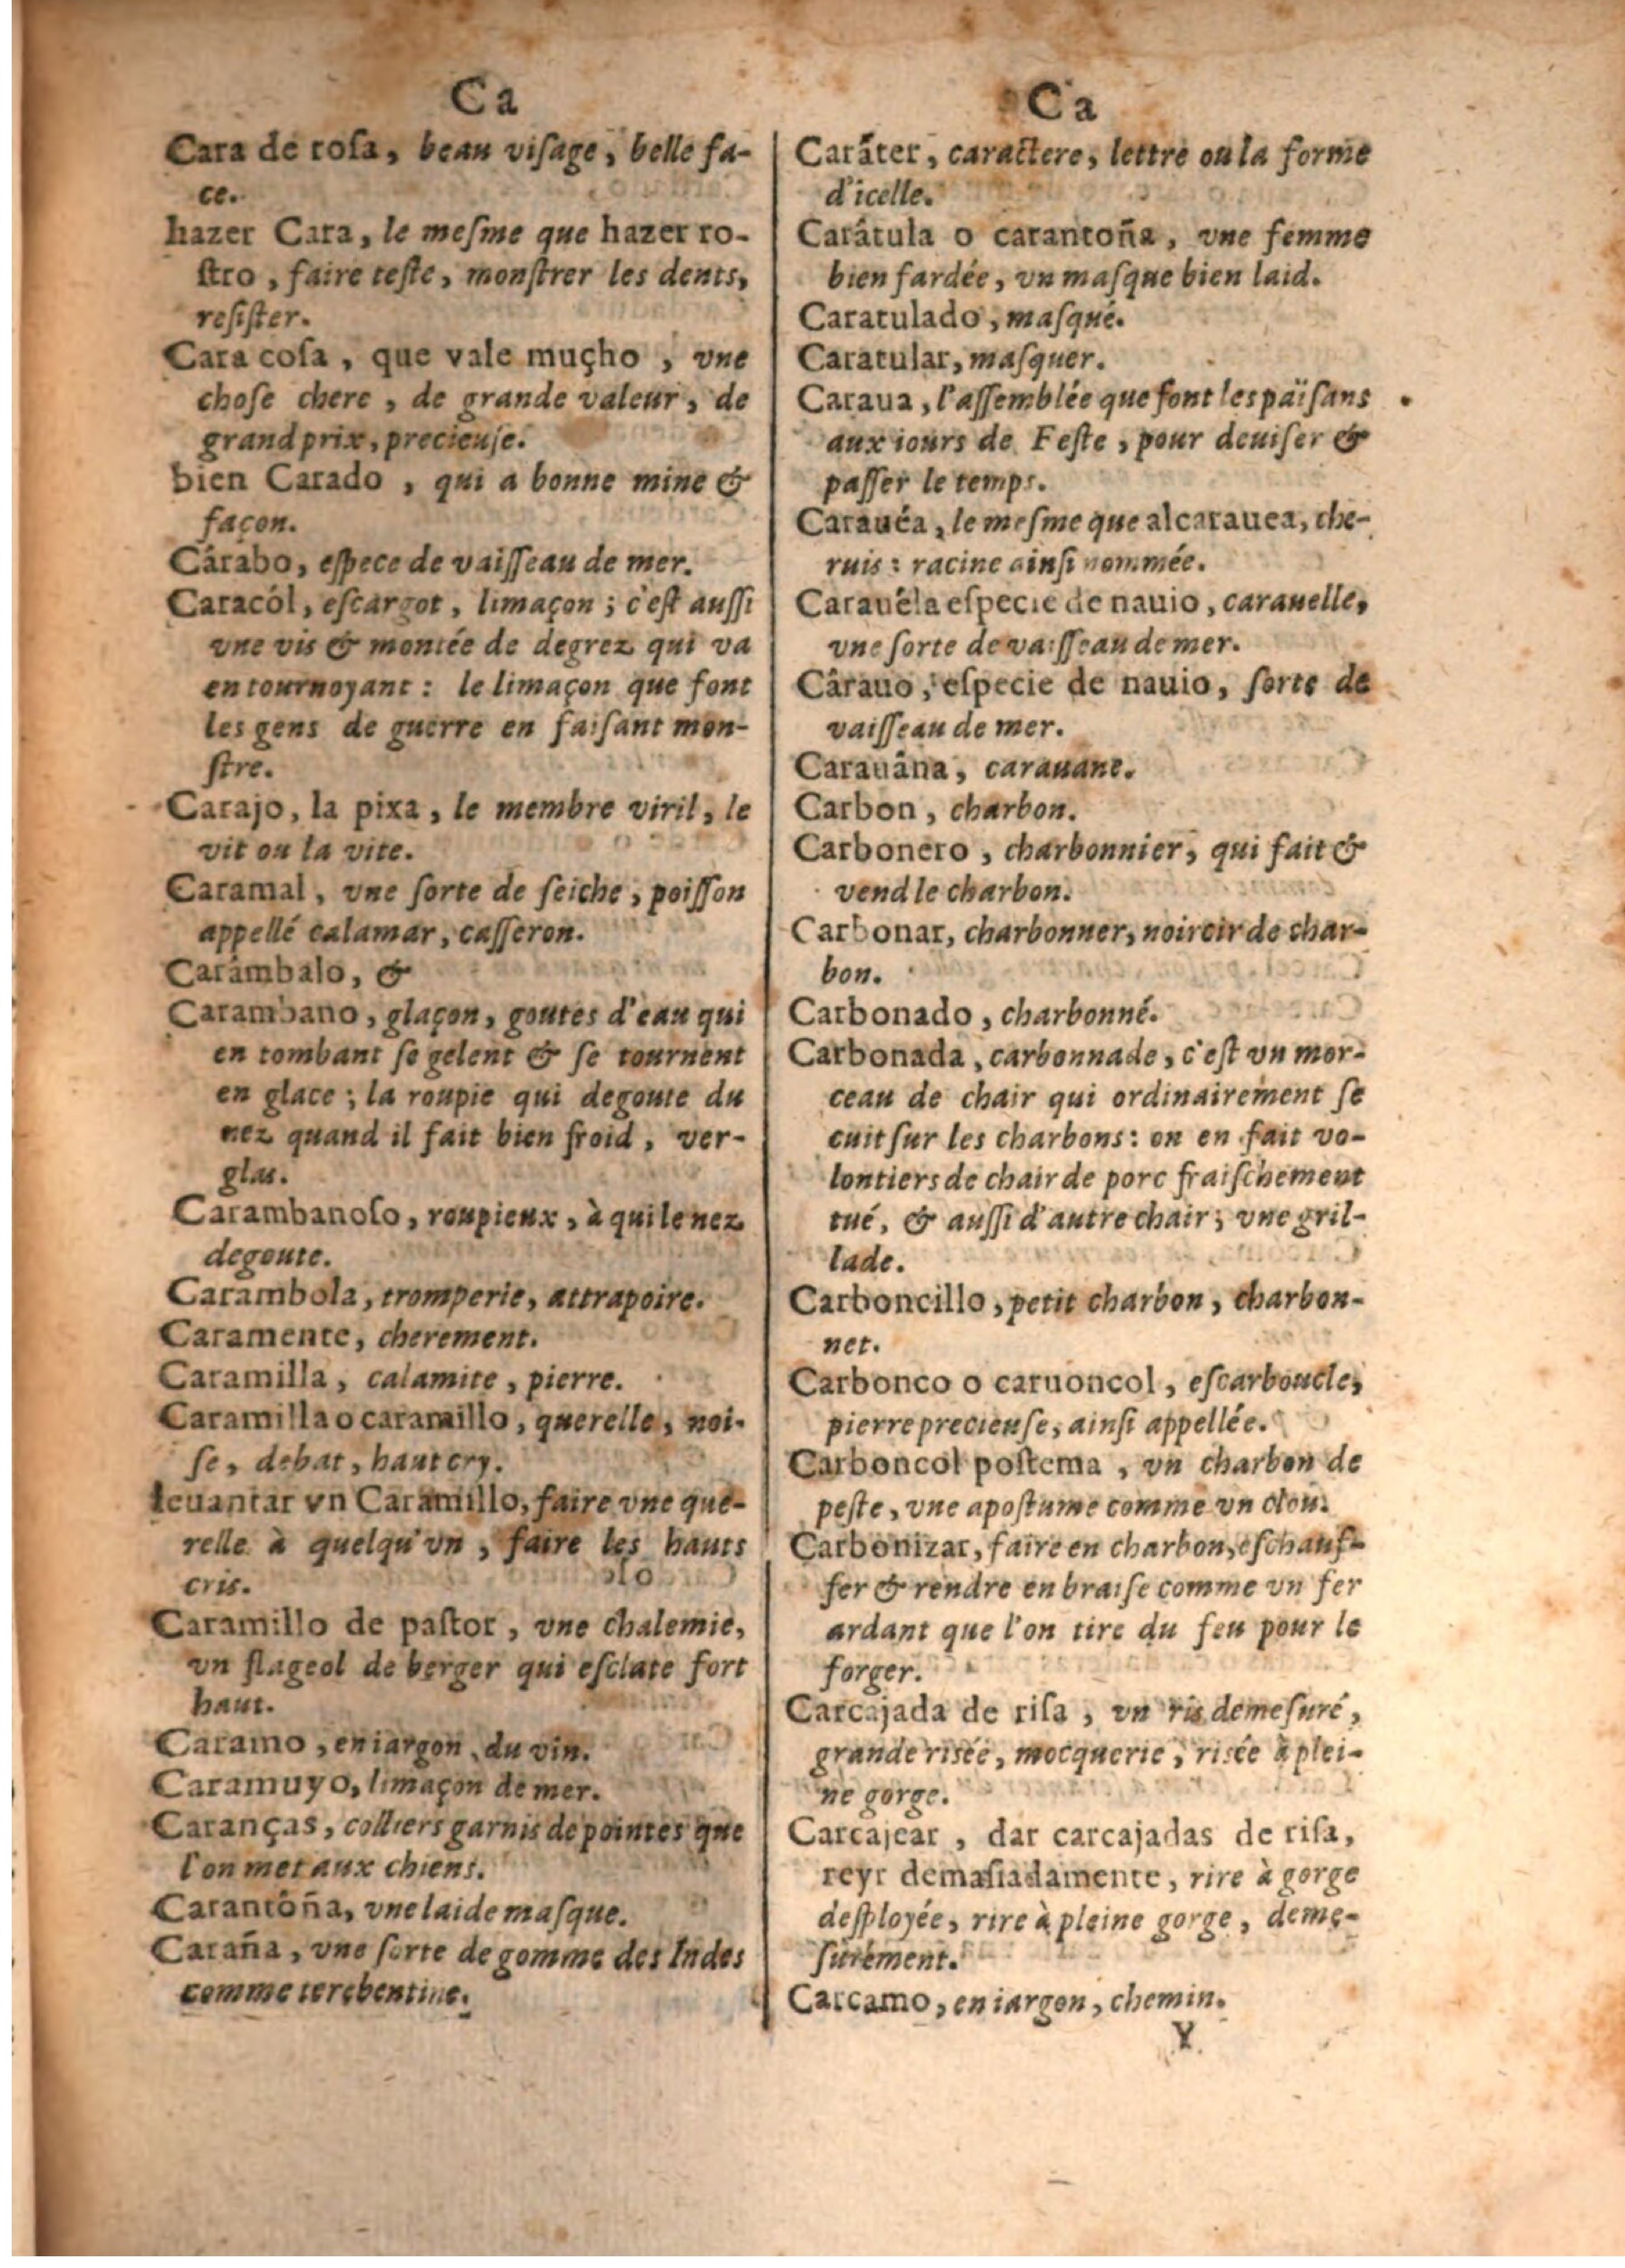 Ca
Cara de rosa, beau viſage, belle fa-
ce.
hazer Cara, le meſme que hazer ro-
ſtro, faire teſte, monſtrer les dents,
reſiſter.
Cara coſa, que vale muçho, vne
choſe chere, de grande valeur, de
grand prix, precieuſe.
bien Carado, qui a bonne mine &
façon.
Cárabo, eſpece de vaiſſeau de mer.
Caracól, eſcargot, limaçon; c'eſt auſſi
vne vis & montée de degrez qui va
en tournoyant: le limaçon que font
les gens de guerre en faiſant mon-
ſtre.
Carajo, la pixa, le membre viril, le
vit ou la vite.
Caramal, vne ſorte de ſeiche, poiſſon
appellé calamar, caſſeron.
Carâmbalo, &
Carambano, glaçon, goutes d'eau qui
en tombant ſe gelent & ſe tournent
en glace; la roupie qui degoute du
nez quand il fait bien froid, ver-
glas.
Carambanoſo, roupieux, à qui le nez
degoute.
Carambola, tromperie, attrapoire.
Caramente, cherement.
Caramilla, calamite, pierre.
Caramilla o caramillo, querelle, noi-
ſe, debat, haut cry.
leuantar vn Caramillo, faire vne que-
relle à quelqu'vn, faire les hauts
cris.
Caramillo de paſtor, vne chalemie,
vn flageol de berger qui eſclate fort
haut.
Caramo, en iargon, du vin.
Caramuyo, limaçon de mer.
Carança​s, colliers garnis de pointes que
l'on met aux chiens.
Carantôña, vne laide maſque.
Caraña, vne ſorte de gomme des Indes
comme terebentine.
Ca
Caráter, caractere, lettre ou la forme
d'icelle.
Carátula o carantoña, vne femme
bien fardée, vn maſque bien laid.
Caratulado, maſqué.
Caratular, maſquer.
Caraua, l'aſſemblée que font les païſans
aux iours de Feſte, pour deuiſer &
paſſer le temps.
Carauéa, le meſme que alcarauea, che-
ruis: racine ainſi nommée.
Carauéla eſpecie de nauio, carauelle,
vne ſorte de vaiſſeau de mer.
Cârauo, eſpecie de nauio, ſorte de
vaiſſeau de mer.
Carauâna, carauane.
Carbon, charbon.
Carbonero, charbonnier, qui fait &
vend le charbon.
Carbonar, charbonner, noircir de char-
bon.
Carbonado, charbonné.
Carbonada, carbonnade, c'eſt vn mor-
ceau de chair qui ordinairement ſe
cuit ſur les charbons: on en fait vo-
lontiers de chair de porc fraiſchement
tué, & auſſi d'autre chair; vne gril-
lade.
Carboncillo, petit charbon, charbon-
net.
Carbonco o caruoncol, eſcarboucle,
pierre precieuſe, ainſi appellée.
Carboncol poſtema, vn charbon de
peſte, vne apoſtume comme vn clou.
Carbonizar, faire en charbon, eſchauf-
fer & rendre en braiſe comme vn fer
ardant que l'on tire du feu pour le
forger.
Carcajada de riſa, vn ris demeſuré,
grande risée, mocquerie, risée à plei-
ne gorge.
Carcajear, dar carcajadas de riſa,
reyr demaſiadamente, rire à gorge
deſployée, rire à pleine gorge, deme-
ſurément.
Carcamo, en iargon, chemin.
Y